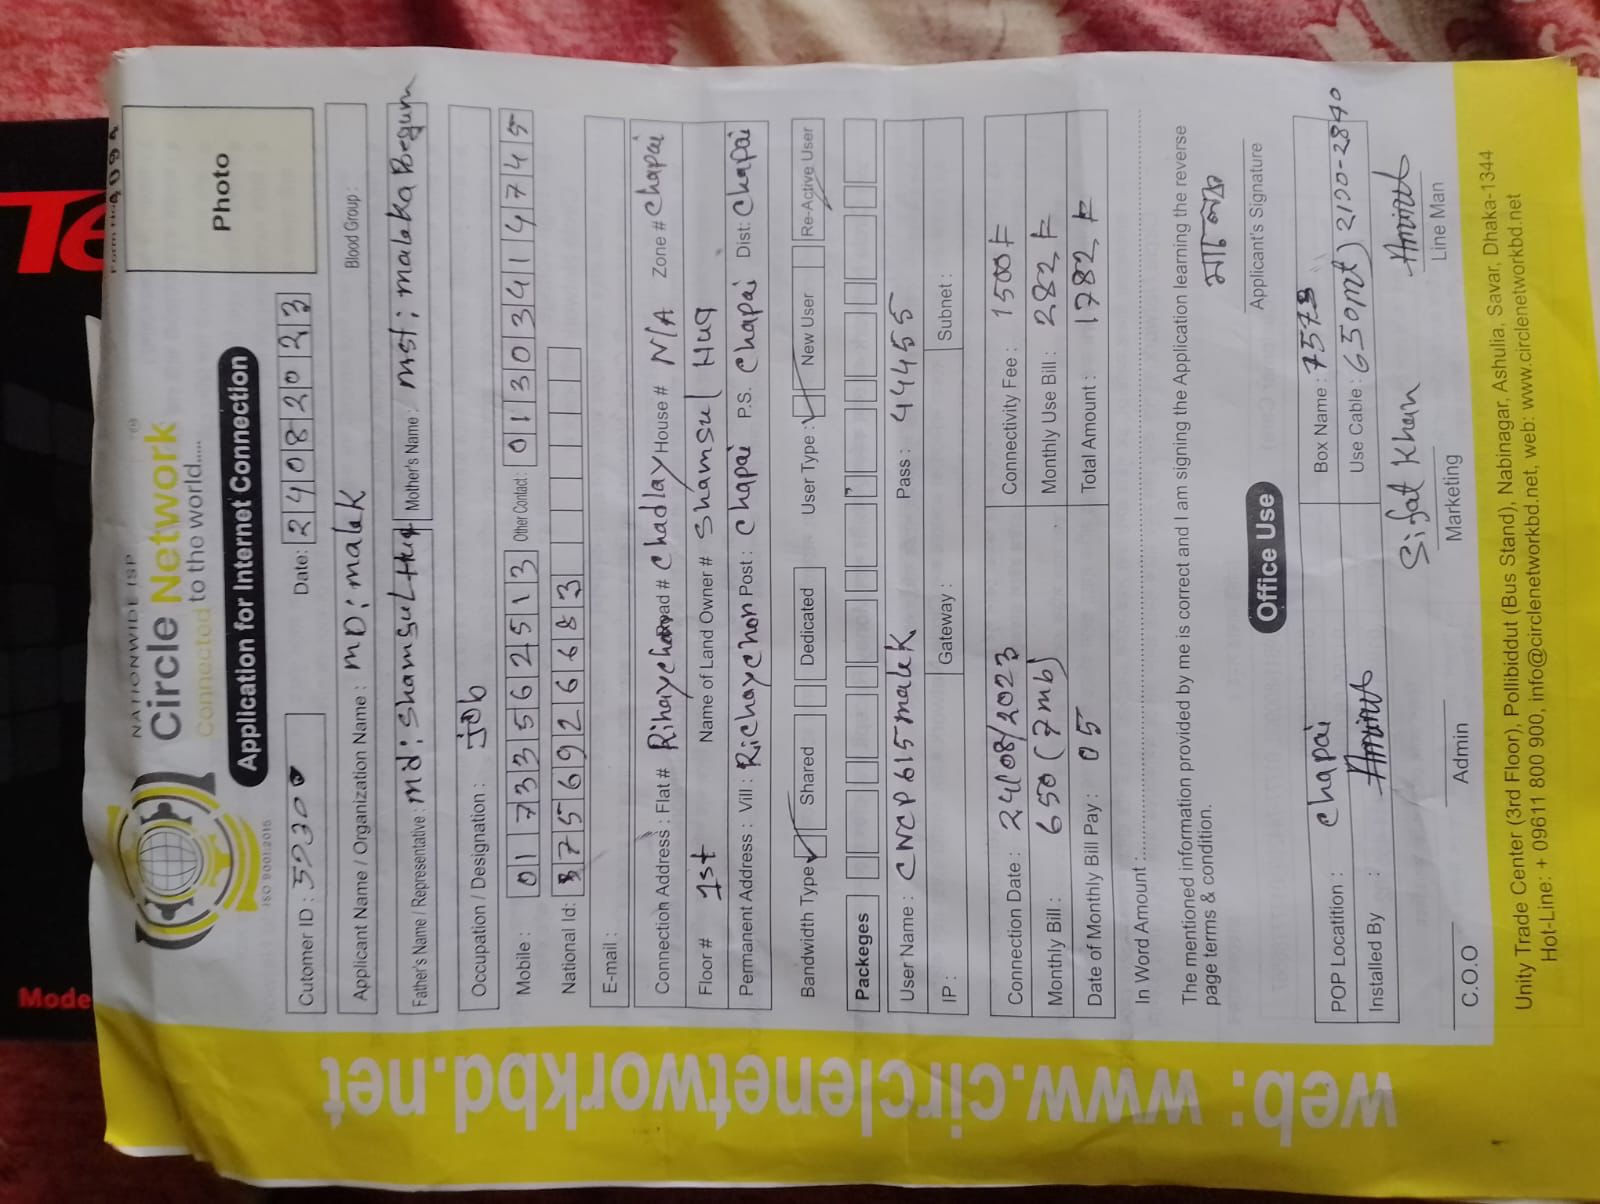 Te
Mode
NATIONWIDE ISP
Circle Network
Connected to the world.....
ISO 9001:2015
Photo
Application for Internet Connection
Cutomer ID : Date: 24082023
Applicant Name / Organization Name : MD: malek Blood Group :
Father's Name / Representative : md: Shamsul Huq Mother's Name : mst: maleka Begum
Occupation / Designation : job
Mobile : 01733562513 Other Contact : 01303414745
National Id: 8756926683
E-mail :
Connection Address : Flat # Road # Chadlay House # N/A Zone # Chapai
Floor # 1st Name of Land Owner # Shamsul Huq
Permanent Address : Vill : Richaychor Post : Chapai P.S. Chapai Dist: Chapai
Bandwidth Type : Shared Dedicated User Type : New User Re-Active User
Packeges
User Name : CNCP615malek Pass : 44455
IP : Gateway : Subnet :
Connection Date : 24/08/2023 Connectivity Fee : 1500 F
Monthly Bill : 650 (7mb) Monthly Use Bill : 282 F
Date of Monthly Bill Pay : 05 Total Amount : 1782 F
In Word Amount :
The mentioned information provided by me is correct and I am signing the Application learning the reverse
page terms & condition.
মালেক
Applicant's Signature
Office Use
POP Locatition : Chapai Box Name : 7573
Installed By : Use Cable : 650mt) 2190-2840
Sifat Khan
C.O.O Admin Marketing Line Man
Unity Trade Center (3rd Floor), Pollibiddut (Bus Stand), Nabinagar, Ashulia, Savar, Dhaka-1344
Hot-Line: + 09611 800 900, info@circlenetworkbd.net, web: www.circlenetworkbd.net
web: www.circlenetworkbd.net